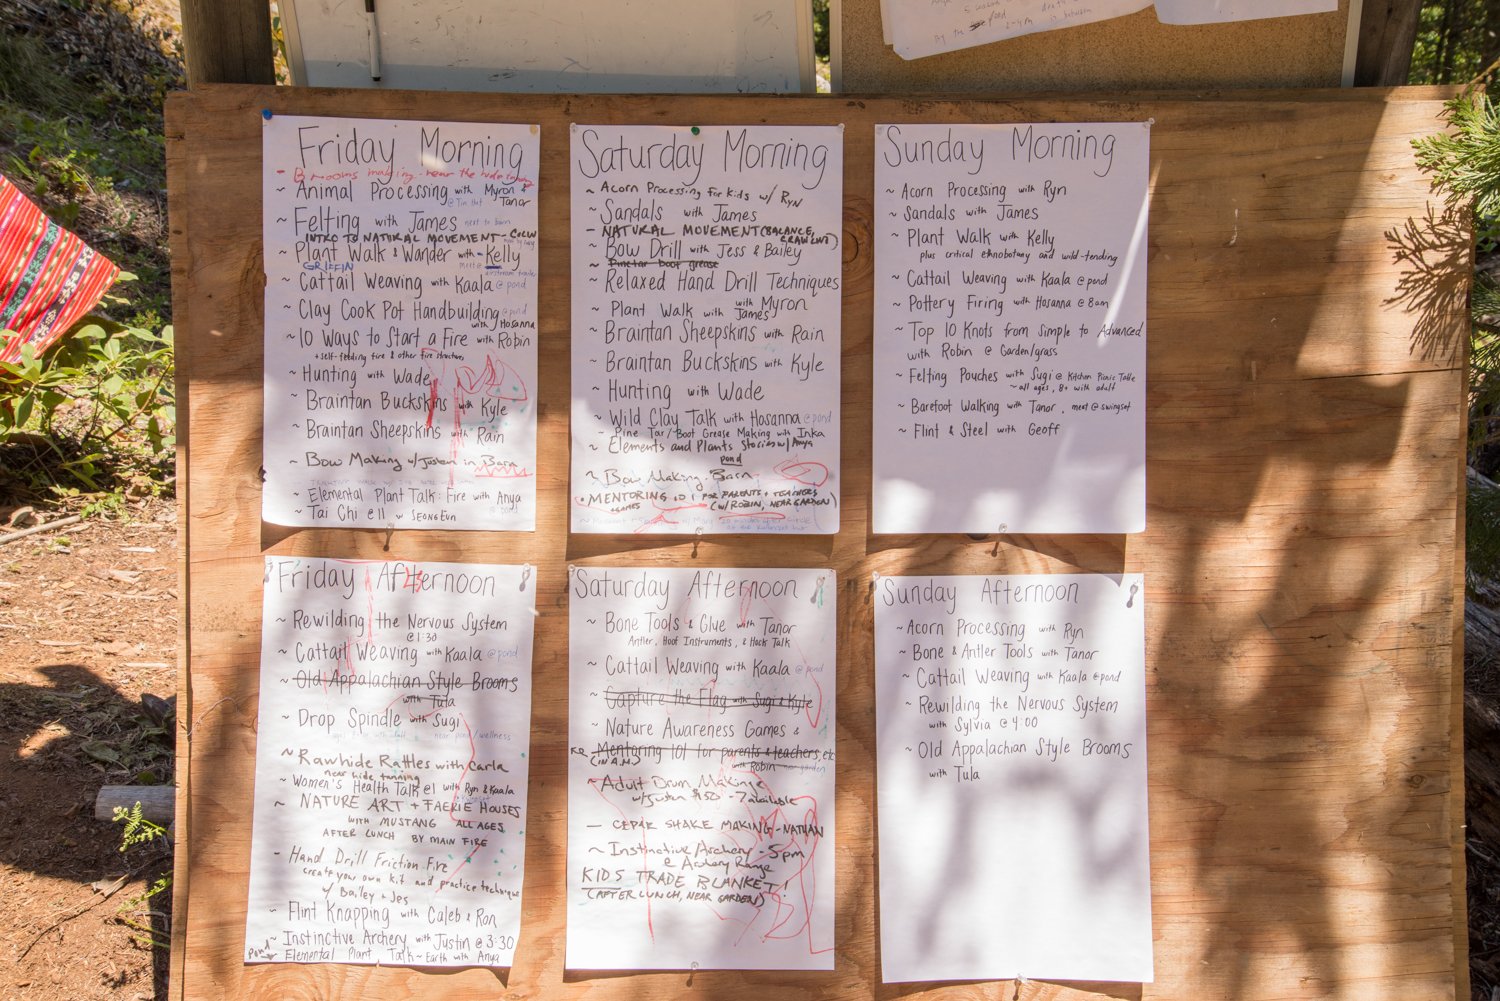 By the pond
Friday Morning
- Brooms making - near the hide tanning
~ Animal Processing with Myron &
@ Tin Hut Tanor
~ Felting with James next to barn
INTRO TO NATURAL MOVEMENT - COLIN
~ Plant Walk & Wander with - Kelly
GRIFFIN meet @ airstream trailer
~ Cattail Weaving with Kaala @ pond
~ Clay Cook Pot Handbuilding @ pond
with Hosanna
~ 10 Ways to Start a Fire with Robin
+ self-feeding fire & other fire structures
~ Hunting with Wade
~ Braintan Buckskins with Kyle
~ Braintan Sheepskins with Rain
~ Bow Making w/ Justin in Barn
~ Elemental Plant Talk: Fire with Anya
@ pond
~ Tai Chi @ 11 w SEONGEUN
Saturday Morning
~ Acorn Processing for kids w/ Ryn
~ Sandals with James
- NATURAL MOVEMENT (BALANCE,
CRAWLING)
~ Bow Drill with Jess & Bailey
~ Pine tar boot grease
~ Relaxed Hand Drill Techniques
~ Plant Walk with Myron
James
~ Braintan Sheepskins with Rain
~ Braintan Buckskins with Kyle
~ Hunting with Wade
~ Wild Clay Talk with Hosanna @ pond
- Pine Tar/Boot Grease Making with Inka
~ Elements and Plants Stories w/ Anya
pond
~ Bow Making - Barn
• MENTORING 101 FOR PARENTS + TEACHERS
+ GAMES (W/ ROBIN, NEAR GARDEN)
Sunday Morning
~ Acorn Processing with Ryn
~ Sandals with James
~ Plant Walk with Kelly
plus critical ethnobotany and wild-tending
~ Cattail Weaving with Kaala @ pond
~ Pottery Firing with Hosanna @ 8am
~ Top 10 Knots from Simple to Advanced
with Robin @ Garden/grass
~ Felting Pouches with Sugi @ Kitchen Picnic Table
~ all ages, 8+ with adult
~ Barefoot Walking with Tanor, meet @ swingset
~ Flint & Steel with Geoff
Friday Afternoon
~ Rewilding the Nervous System
@ 1:30
~ Cattail Weaving with Kaala @ pond
~ Old Appalachian Style Brooms
with Tula
~ Drop Spindle with Sugi
near pond/wellness
~ Rawhide Rattles with Carla
near hide tanning
~ Women's Health Talk @ 1 with Ryn & Kaala
~ NATURE ART + FAERIE HOUSES
WITH MUSTANG ALL AGES
AFTER LUNCH BY MAIN FIRE
- Hand Drill Friction Fire
create your own kit and practice technique
w/ Bailey + Jes
~ Flint Knapping with Caleb & Ron
~ Instinctive Archery with Justin @ 3:30
Pond ~ Elemental Plant Talk ~ Earth with Anya
Saturday Afternoon
~ Bone Tools & Glue with Tanor
Antler, Hoof Instruments, & Hock Talk
~ Cattail Weaving with Kaala @ pond
~ Capture the Flag with Sugi & Kyle
~ Nature Awareness Games &
Mentoring 101 for parents & teachers, etc
(IN A.M.) with Robin near garden
~ Adult Drum Making
w/ Justin $50 - 7 available
— CEDAR SHAKE MAKING - NATHAN
~ Instinctive Archery - 5pm
@ Archery Range
KIDS TRADE BLANKET!
(AFTER LUNCH, NEAR GARDEN)
Sunday Afternoon
~ Acorn Processing with Ryn
~ Bone & Antler Tools with Tanor
~ Cattail Weaving with Kaala @ pond
~ Rewilding the Nervous System
with Sylvia @ 4:00
~ Old Appalachian Style Brooms
with Tula